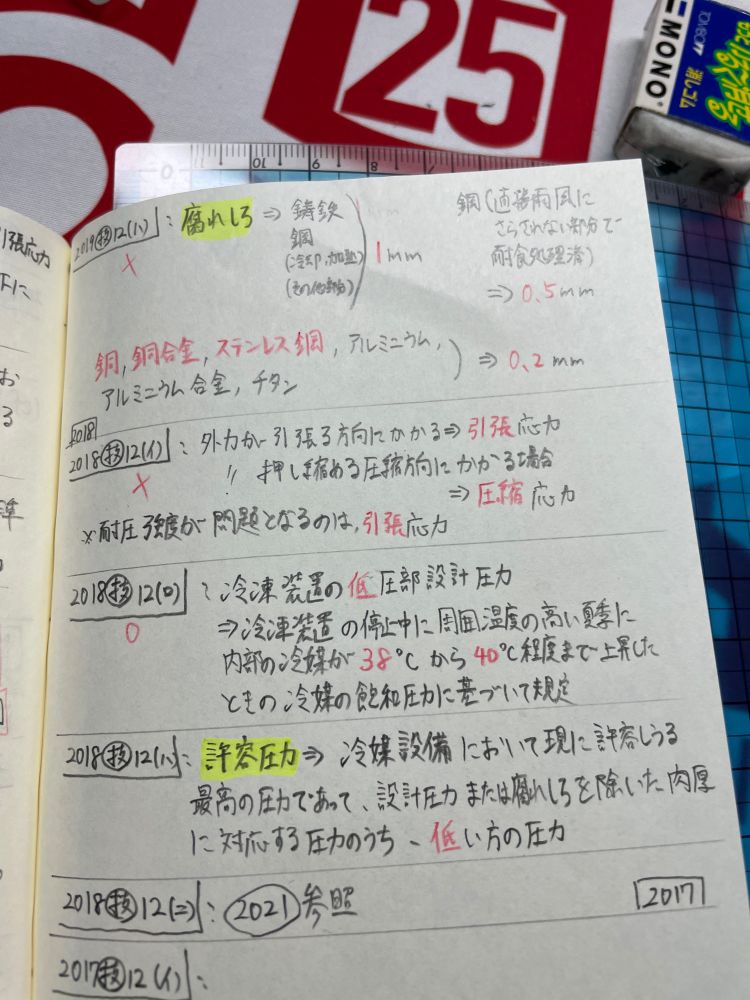 25
MONO
TOMBOW
消しゴム
0
11
10
8
引張応力
下に
お
る
準
2019(技)12(ハ):腐れしろ⇒鋳鉄
×
鋼
(冷却,加熱)
(その他部分)
1mm
鋼(直接雨風に
さらされない部分で
耐食処理済)
⇒0.5mm
銅,銅合金,ステンレス鋼,アルミニウム,
アルミニウム合金,チタン
⇒0.2mm
2018
2018(技)12(イ):外力が引張る方向にかかる⇒引張応力
×
〃 押し縮める圧縮方向にかかる場合
⇒圧縮応力
※耐圧強度が問題となるのは,引張応力
2018(技)12(ロ):冷凍装置の低圧部設計圧力
○
⇒冷凍装置の停止中に周囲温度の高い夏季に
内部の冷媒が38℃から40℃程度まで上昇した
ときの冷媒の飽和圧力に基づいて規定
2018(技)12(ハ):許容圧力⇒冷媒設備において現に許容しうる
最高の圧力であって、設計圧力または腐れしろを除いた肉厚
に対応する圧力のうち、低い方の圧力
2018(技)12(ニ):2021参照
2017
2017(技)12(イ):